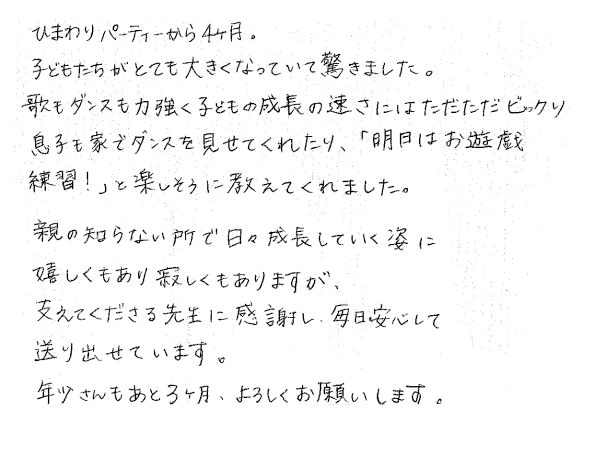 ひまわりパーティーから4ヶ月。
子どもたちがとても大きくなっていて驚きました。
歌もダンスも力強く子どもの成長の速さにはただただビックリ
息子も家でダンスを見せてくれたり、「明日はお遊戯
練習!」と楽しそうに教えてくれました。
親の知らない所で日々成長していく姿に
嬉しくもあり寂しくもありますが、
支えてくださる先生に感謝し、毎日安心して
送り出せています。
年少さんもあと3ヶ月、よろしくお願いします。